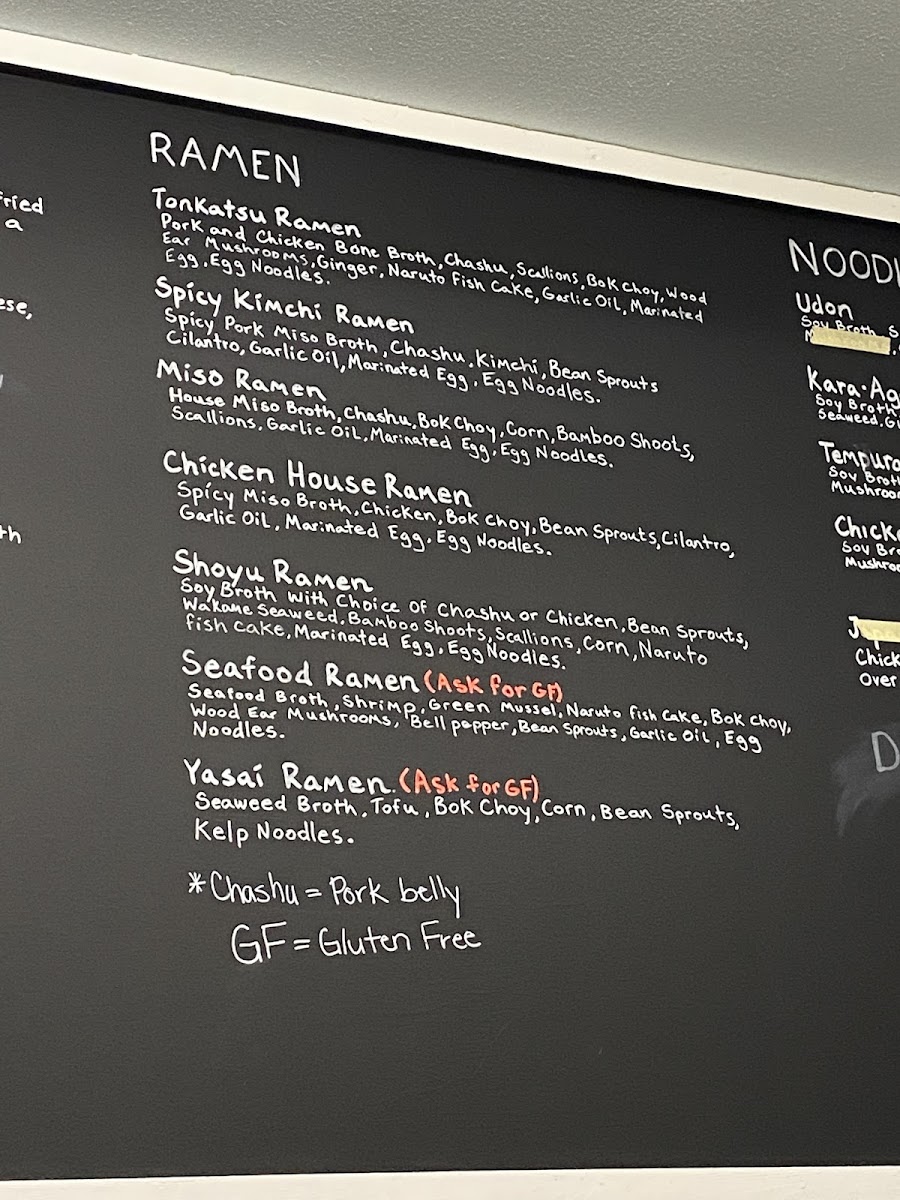 fried
a
ese,
th
RAMEN
Tonkatsu Ramen
Pork and Chicken Bone Broth, Chashu, Scallions, Bok Choy, Wood
Ear Mushrooms, Ginger, Naruto Fish Cake, Garlic Oil, Marinated
Egg, Egg Noodles.
Spicy Kimchi Ramen
Spicy, Pork Miso Broth, Chashu, Kimchi, Bean Sprouts
Cilantro, Garlic Oil, Marinated Egg, Egg Noodles.
Miso Ramen
House Miso Broth, Chashu, Bok Choy, Corn, Bamboo Shoots,
Scallions, Garlic Oil, Marinated Egg, Egg Noodles.
Chicken House Ramen
Spicy Miso Broth, Chicken, Bok Choy, Bean Sprouts, Cilantro,
Garlic Oil, Marinated Egg, Egg Noodles.
Shoyu Ramen
Soy Broth with Choice of Chashu or Chicken, Bean Sprouts,
Wakame Seaweed, Bamboo Shoots, Scallions, Corn, Naruto
fish cake, Marinated Egg, Egg Noodles.
Seafood Ramen (Ask for GF)
Seafood Broth, Shrimp, Green Mussel, Naruto fish cake, Bok Choy,
Wood Ear Mushrooms, Bell pepper, Bean Sprouts, Garlic Oil, Egg
Noodles.
Yasai Ramen. (Ask for GF)
Seaweed Broth, Tofu, Bok Choy, Corn, Bean Sprouts,
Kelp Noodles.
*Chashu = Pork belly
GF = Gluten Free
NOOD
Udon
Soy Broth S
Kara-Ag
Soy Broth
Seaweed, G
Tempura
Soy Brot
Mushroo
Chick
Soy Br
Mushro
J
Chick
Over
D